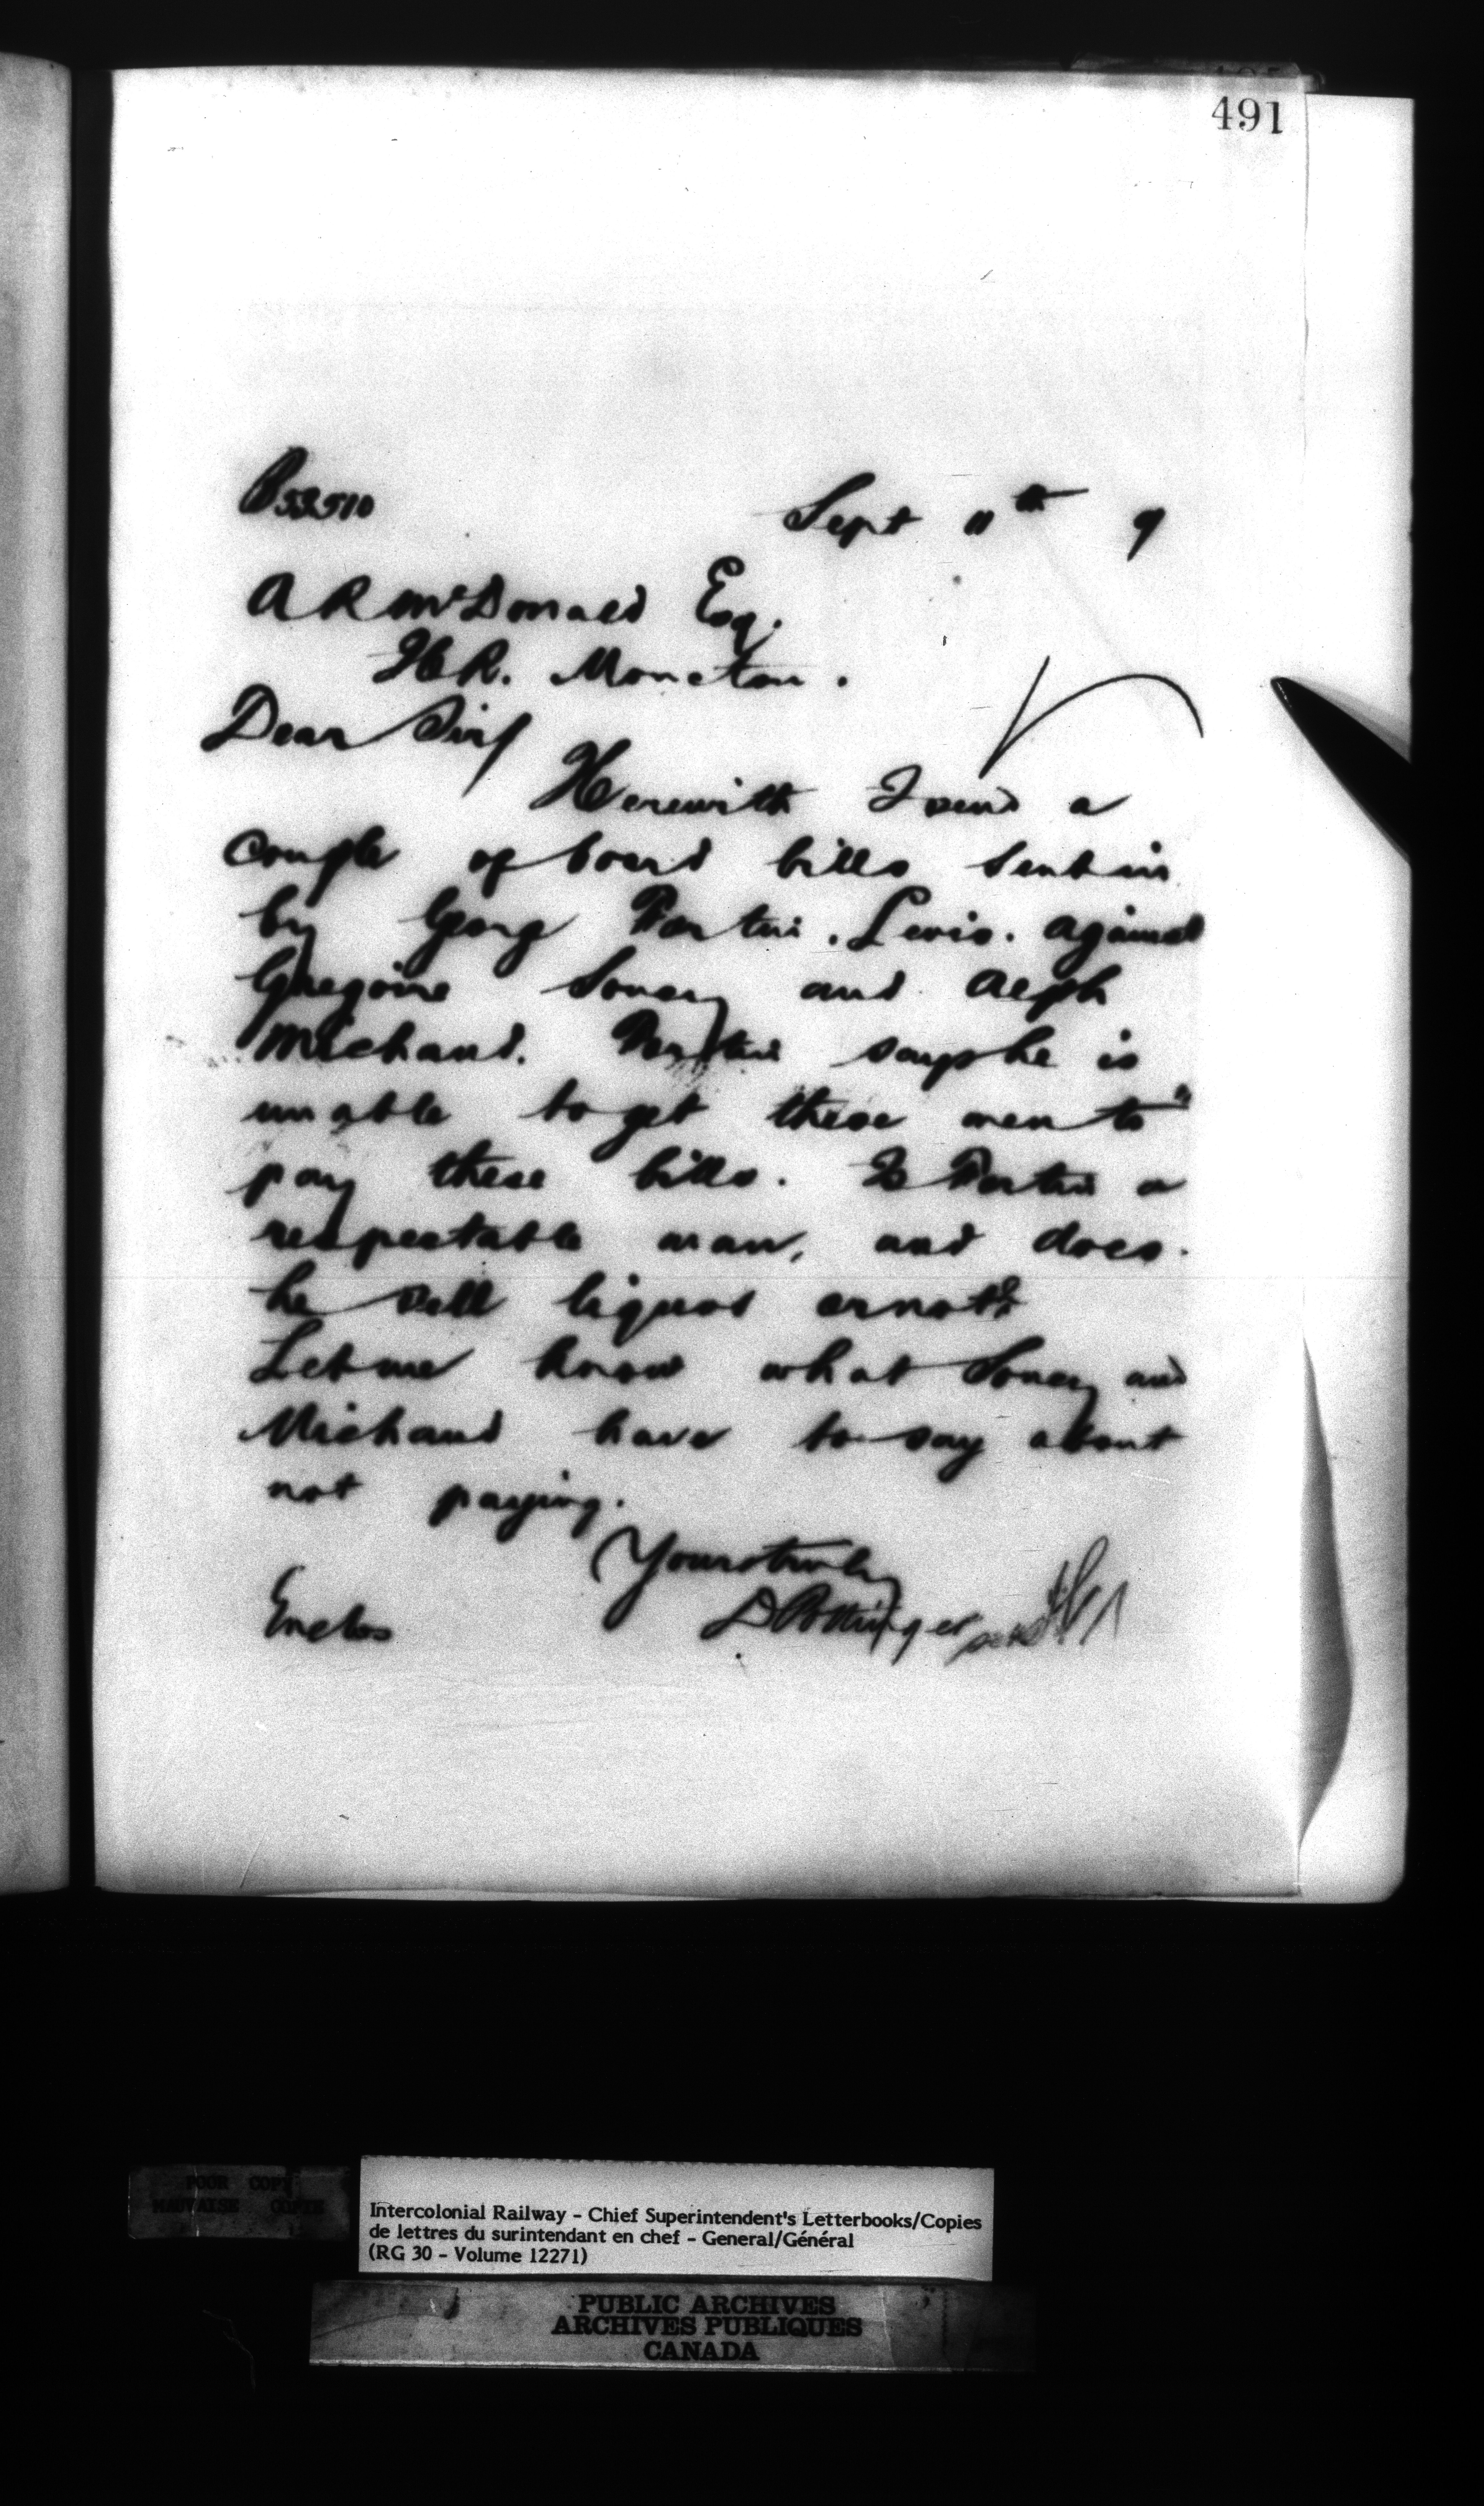 491
B53510
Sept 11th 9
A R McDonald Esq.
Moncton.
Dear Sir/
Herewith I send a
couple of board bills sent in
by Georg Fortin. Levis. against
Gregoire Soucy and Alph
Michaud. Fortin says he is
unable to get these men to
pay these bills. Is Fortin a
respectable man, and does
he sell liquor or not?
Let me know what Soucy and
Michaud have to say about
not paying.
Yours truly
D Pottinger
Enclos
POOR COPY
MAUVAISE COPIE
Intercolonial Railway - Chief Superintendent's Letterbooks/Copies
de lettres du surintendant en chef - General/Général
(RG 30 - Volume 12271)
PUBLIC ARCHIVES
ARCHIVES PUBLIQUES
CANADA